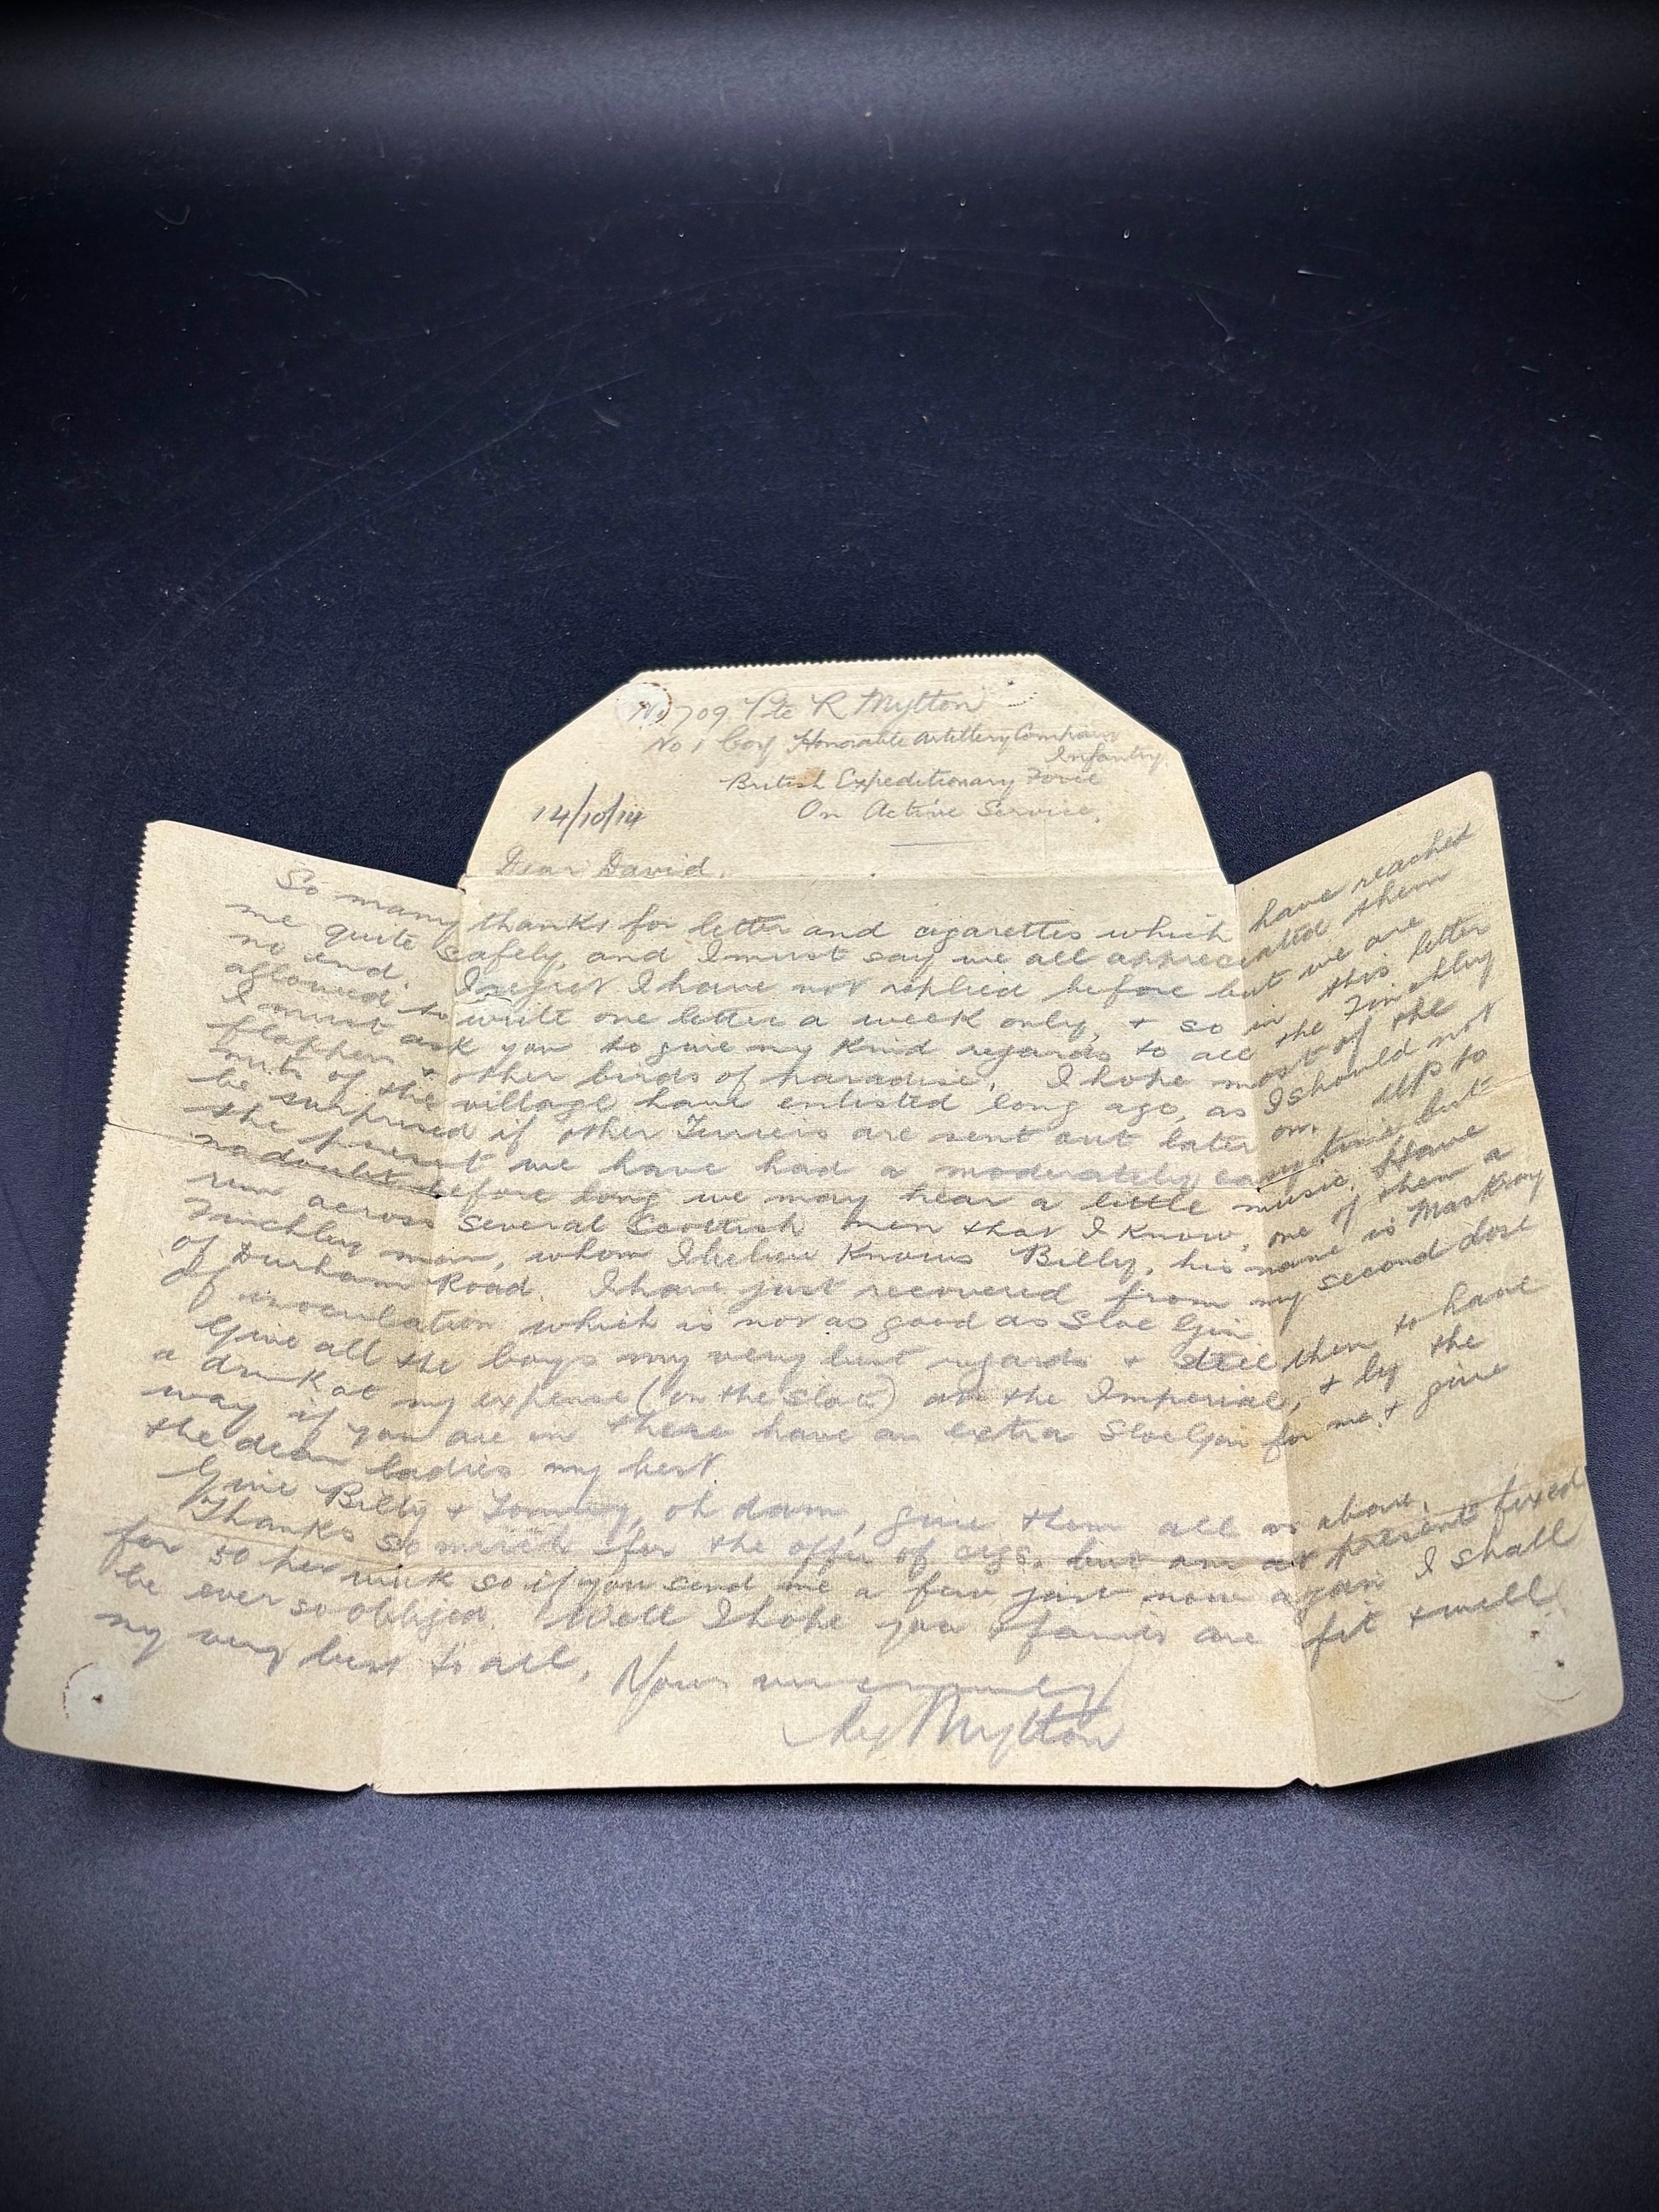 No 709 Pte R Mylton
No 1 Coy Honorable Artillery Company
Infantry.
British Expeditionary Force
On Active Service,
14/10/14
Dear David,
So many thanks for letter and cigarettes which have reached
me quite safely, and I must say we all appreciated them
no end. I regret I have not replied before but we are
allowed to write one letter a week only, + so in this letter
I must ask you to give my kind regards to all the Finchley
flappers + other birds of paradise. I hope most of the
nuts of the village have enlisted long ago, as I should not
be surprised if other Terriers are sent out later on. Up to
the present we have had a moderately easy time but
no doubt before long we may hear a little music. Have
run across several Scottish men that I know, one of them a
Finchley man, whom I believe knows Billy, his name is Maskroy
of Durham Road. I have just recovered from my second dose
of inoculation which is not as good as Sloe Gin.
Give all the boys my very best regards + tell them to have
a drink at my expense (on the slate) at the Imperial, + by the
way if you are in there have an extra Sloe Gin for me + give
the dear ladies my best.
Give Billy + Tommy, oh damn, give them all as above.
Thanks so much for the offer of cigs. but am at present fixed
for 50 per week so if you send me a few just now again I shall
be ever so obliged. Well I hope you + are fit + well
my very best to all,
Yours very sincerely
Rex Mylton